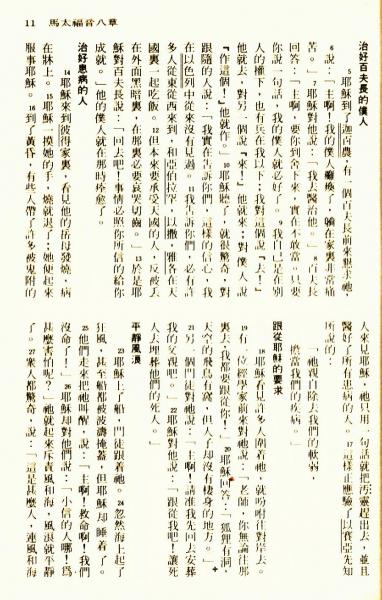 11 馬太福音八章
治好百夫長的僕人
5 耶穌到了迦百農,有一個百夫長前來懇求祂,
6 說:「主啊!我的僕人癱瘓了,躺在家裏非常痛
苦。」7 耶穌對他說:「我去醫治他。」8 百夫長
回答:「主啊,要你到舍下來,實在不敢當,只要
你說一句話,我的僕人就必好了。9 我自己是在別
人的權下,也有兵在我以下;我對這個說『去!』
他就去,對另一個說『來!』他就來;對僕人說
『作這個!』他就作。」10 耶穌聽了,就很驚奇,對
跟隨的人說:「我實在告訴你們,這樣的信心,我
在以色列中從來沒有見過。11 我告訴你們,必有許
多人從東從西來到,和亞伯拉罕、以撒、雅各在天
國裏一起吃飯。12 但本來要承受天國的人,反被丟
在外面黑暗裏,在那裏必要哀哭切齒。」13 於是耶
穌對百夫長說:「回去吧!事情必照你所信的給你
成就。」他的僕人就在那時痊愈了。
治好患病的人
14 耶穌來到彼得家裏,看見他的岳母發燒,病
在牀上。15 耶穌一摸她的手,燒就退了;她便起來
服事耶穌。16 到了黃昏,有些人帶了許多被鬼附的
人來見耶穌,祂只用一句話就把污靈趕出去,並且
醫好了所有患病的人。17 這樣正應驗了以賽亞先知
所說的:
「祂親自除去我們的軟弱,
擔當我們的疾病。」
跟從耶穌的要求
18 耶穌看見許多人圍着祂,就吩咐往對岸去。
19 有一位經學家前來對祂說:「老師,你無論往那
裏去,我都要跟從你!」20 耶穌回答:「狐狸有洞,
天空的飛鳥有窩,但人子却沒有棲身的地方。」
21 另一個門徒對祂說:「主啊!請准我先回去安葬
我的父親吧。」22 耶穌對他說:「跟從我吧!讓死
人去埋葬他們的死人。」
平靜風浪
23 耶穌上了船,門徒跟着祂。24 忽然海上起了
狂風,甚至船都被波濤掩蓋,但耶穌却睡着了。
25 他們走來把祂叫醒,說:「主啊!救命啊!我們
沒命了!」26 耶穌却對他們說:「小信的人哪!爲
甚麼害怕呢?」祂就起來斥責風和海,風浪就平靜
了。27 衆人都驚奇,說:「這是甚麼人,連風和海